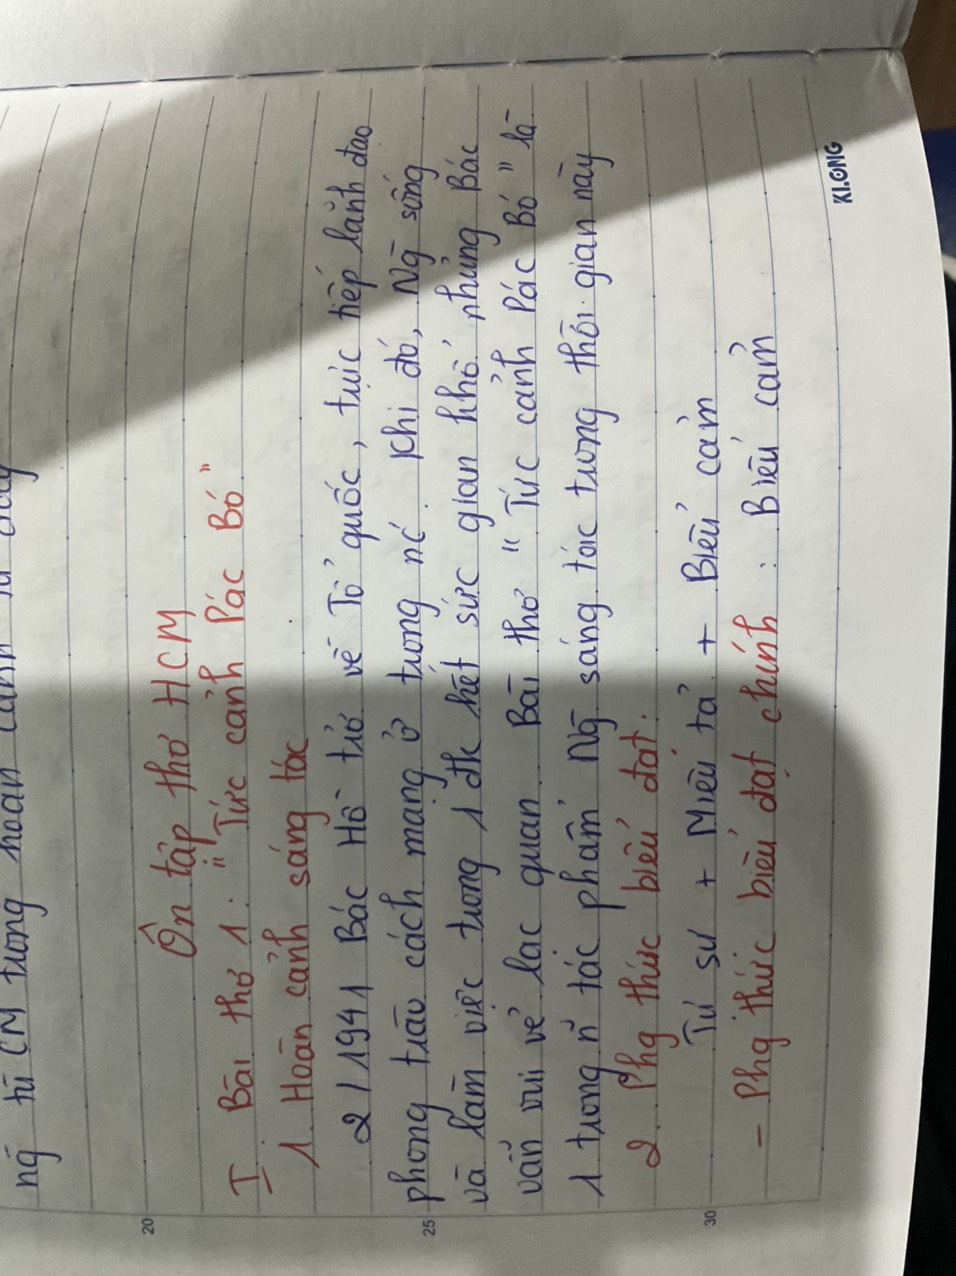 ng tù CM trong hoàn cảnh
20
Ôn tập thơ HCM
I. Bài thơ 1: "Tức cảnh Pác Bó"
1 Hoàn cảnh sáng tác
2/1941 Bác Hồ trở về Tổ quốc, trực tiếp lãnh đạo
phong trào cách mạng ở trong nc. Khi đó, Ng sống
25
và làm việc trong 1 đk hết sức gian khổ nhưng Bác
vẫn vui vẻ lạc quan. Bài thơ "Tức cảnh Pác Bó" là
1 trong n~ tác phẩm Ng sáng tác trong thời gian này
2. Phg thức biểu đạt.
30
Tự sự + Miêu tả + Biểu cảm
- Phg thức biểu đạt chính : Biểu cảm
KLONG